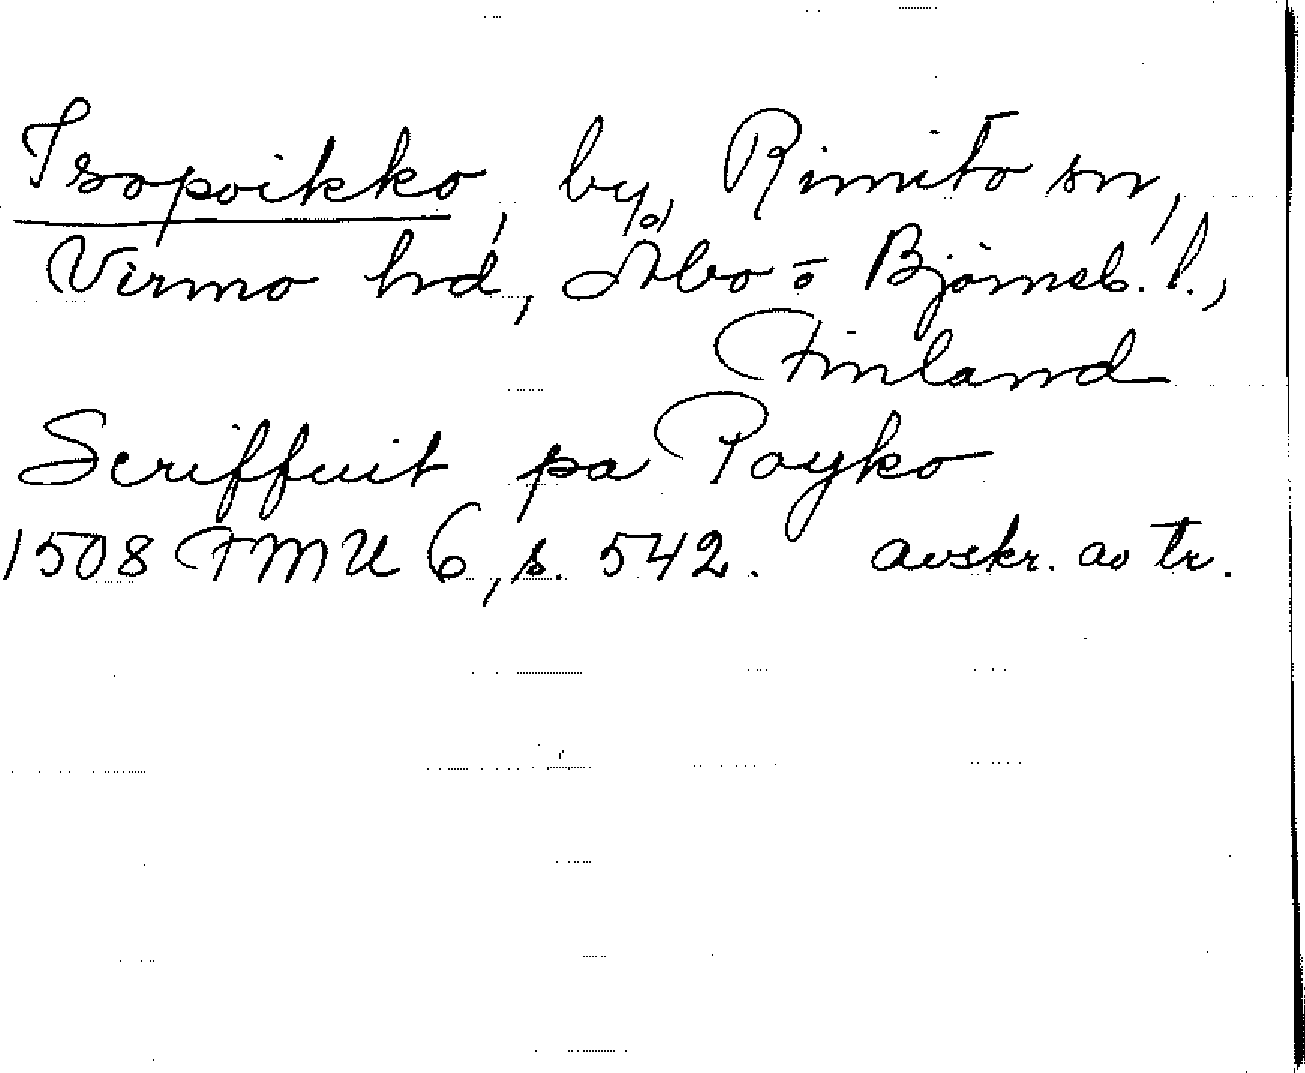 Isopoikko, by, Rimito sn,
Virmo hd, Åbo o Björneb. l.,
Finland
Scriffuit pa Poyko
1508 FMU 6, s. 542. avskr. av tr.